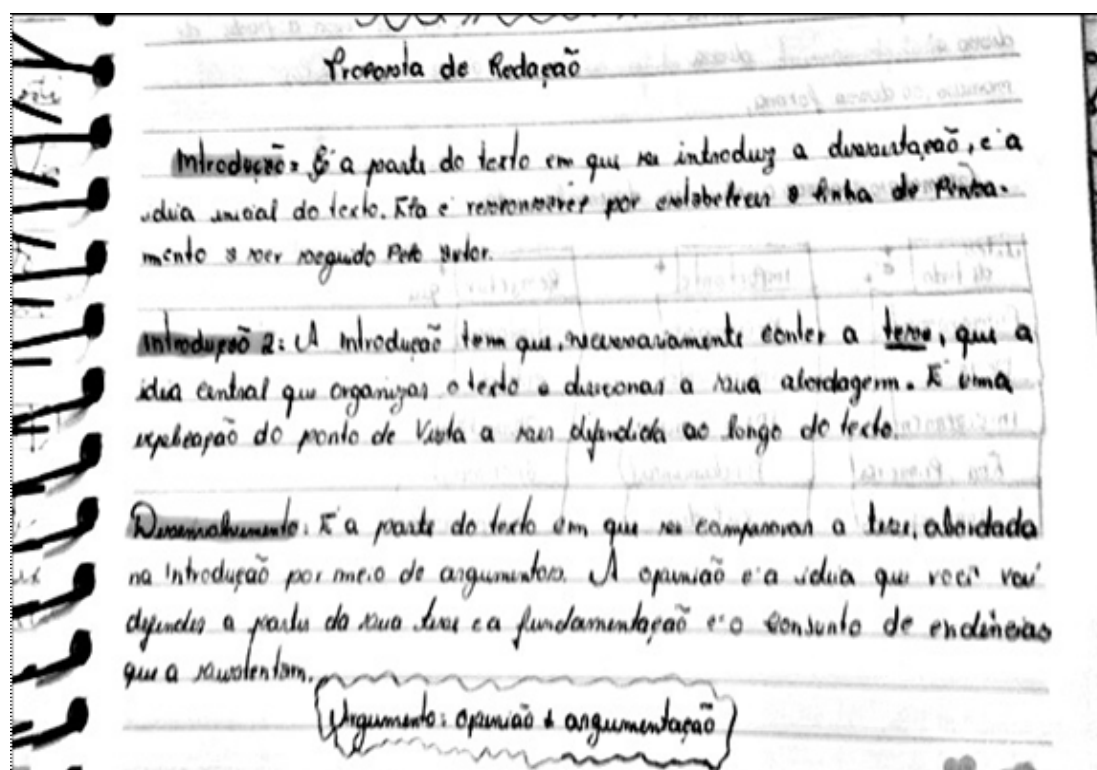 Proposta de Redação
Introdução: É a parte do texto em que se introduz a dissertação, e a
ideia inicial do texto. Ela é responsável por estabelecer a linha de Pensa-
mento a ser seguido Pelo autor.
Introdução 2: A introdução tem que, necessariamente conter a tese, que a
ideia central que organizar o texto e direcionar a sua abordagem. É uma
explicação do ponto de Vista a ser defendida ao longo do texto.
Desenvolvimento: É a parte do texto em que se a tese, abordada
na introdução por meio de argumentos. A opinião e a ideia que você vai
defender a partir da sua tese e a fundamentação e o conjunto de
que a sustentam.
Argumento: opinião + argumentação